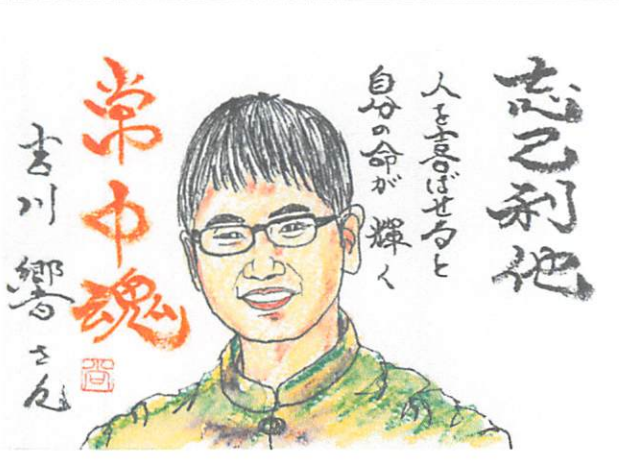 忘己利他
人を喜ばせると
自分の命が 輝く
常中魂
吉川 響さん